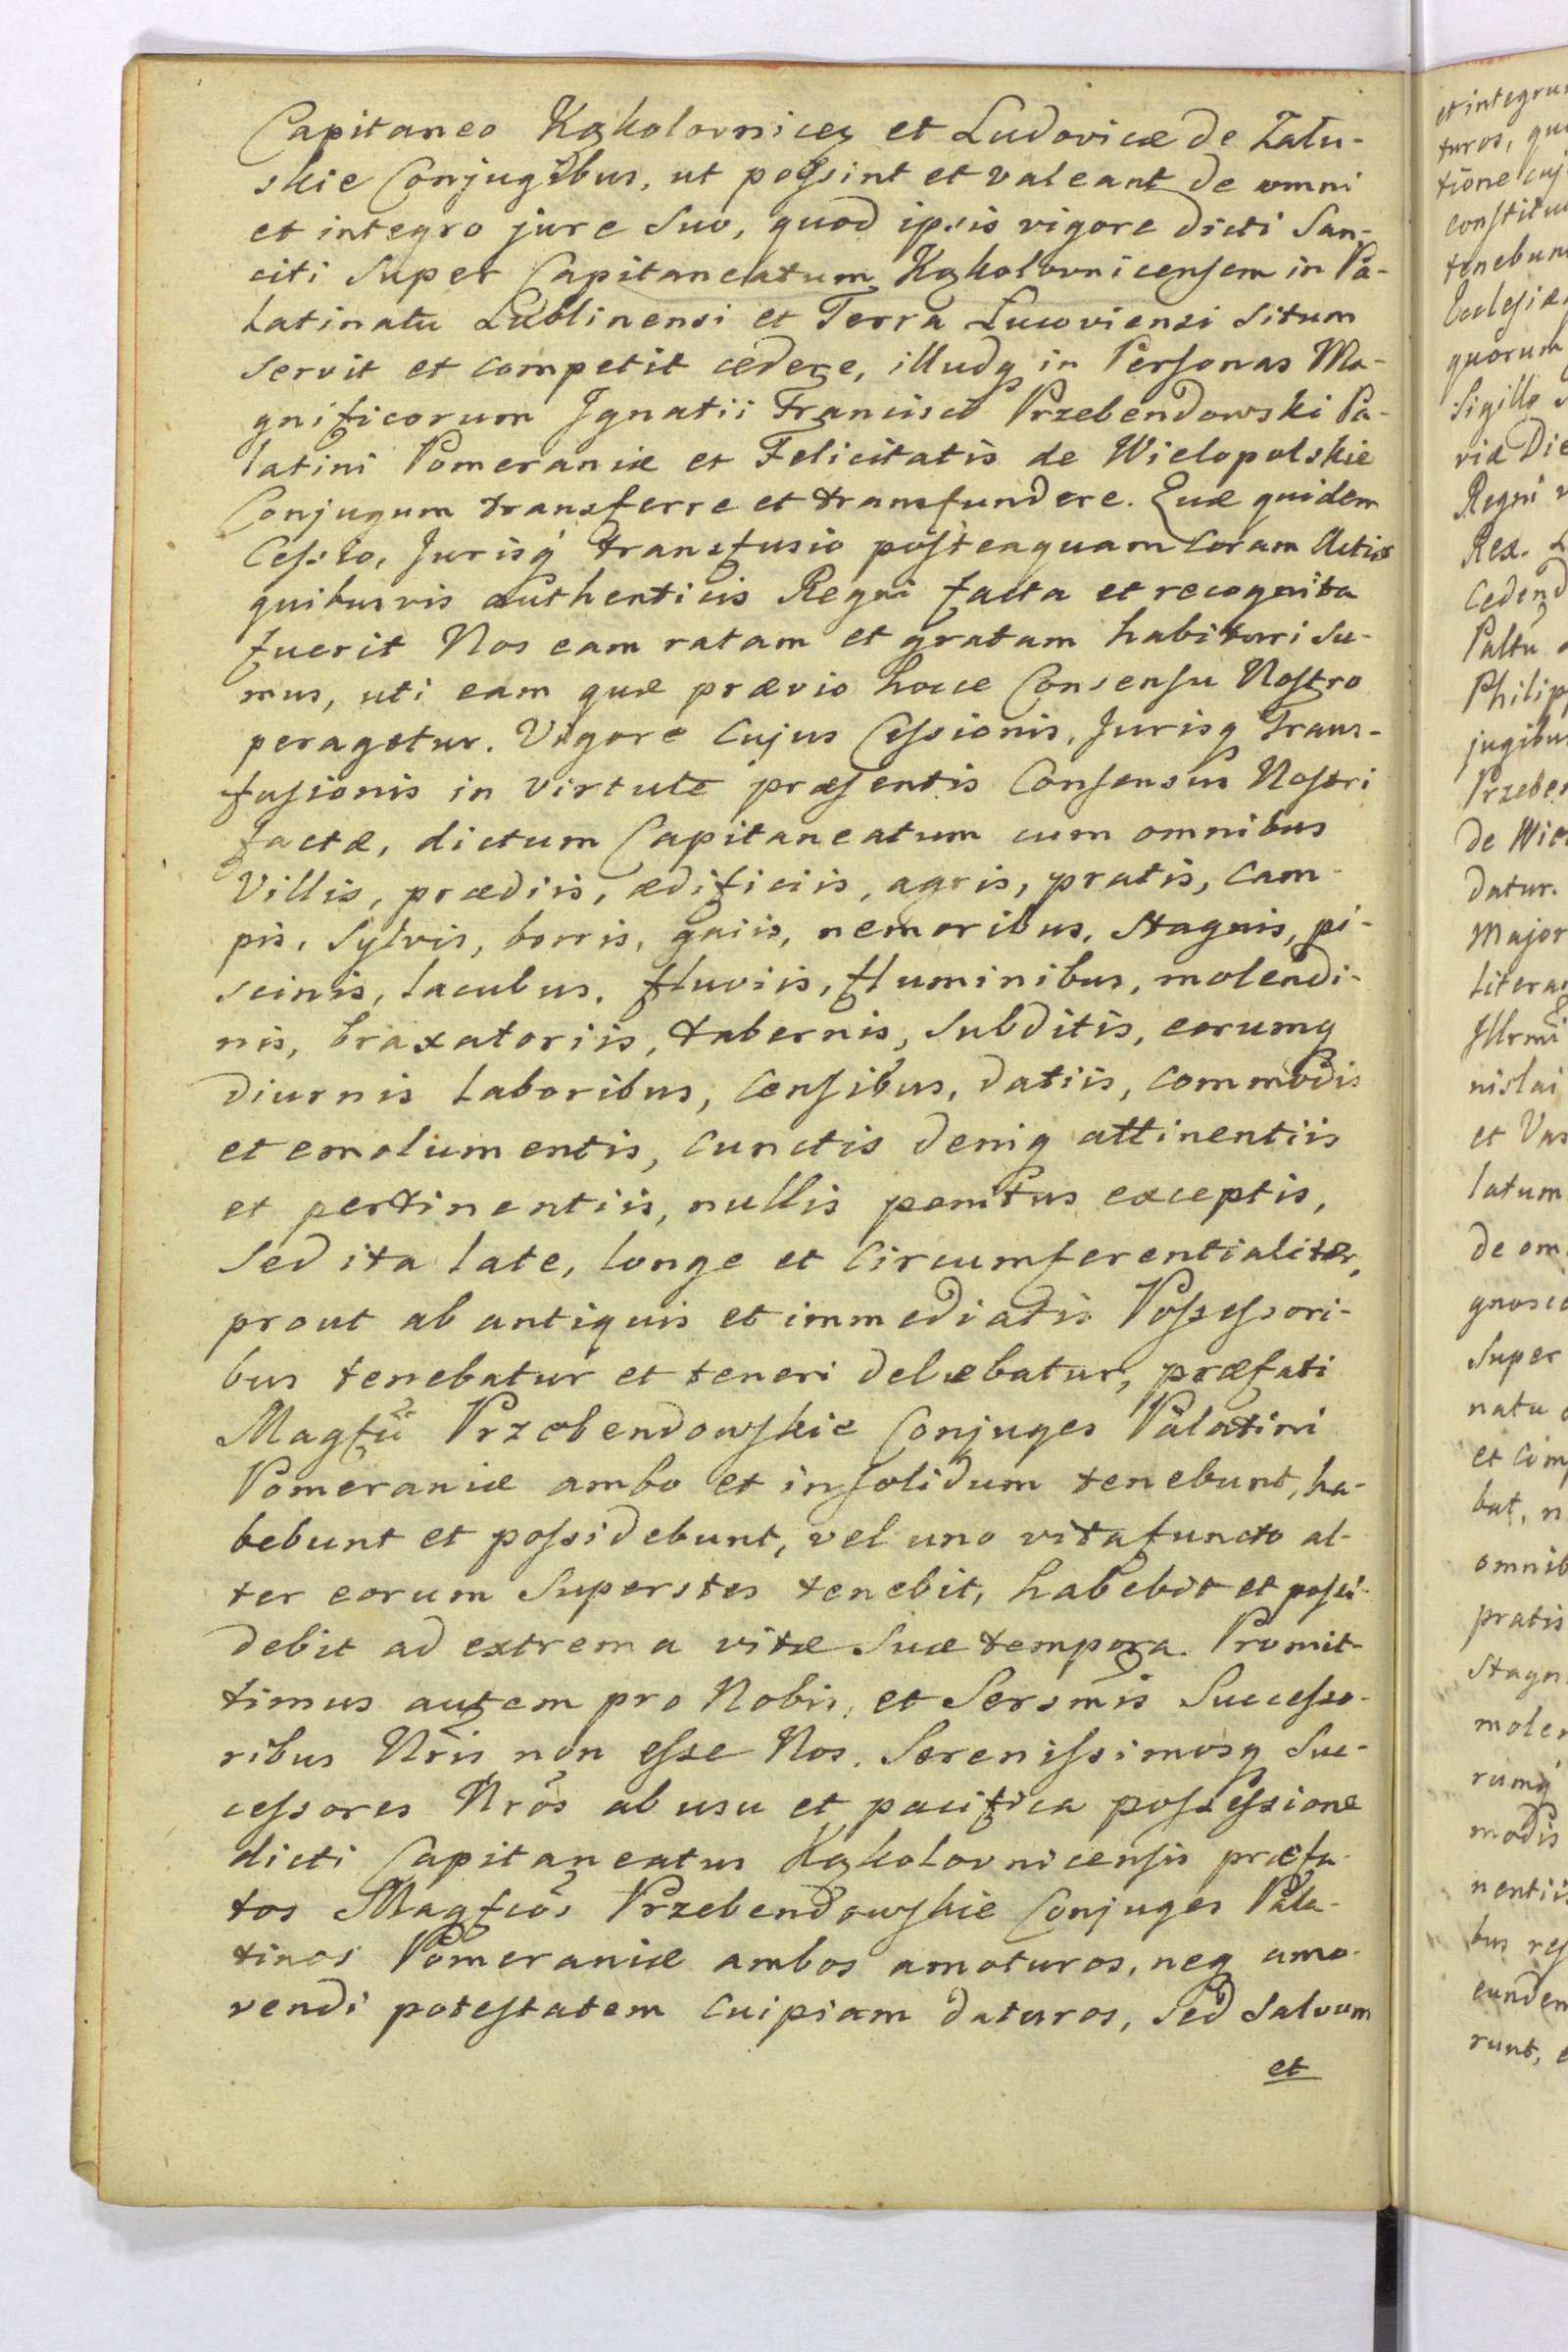 Capitaneo Kąkolovnicen et Ludovicæ de Zału-
skie Conjugibus, ut possint et valeant de omni
et integro jure suo, quod ipsis vigore dicti San-
citi super Capitaneatum Kąkolovnicensem in Pa-
latinatu Lublinensi et Terra Lucoviensi situm
servit et competit cedere, illudq in Personas Ma-
gnificorum Ignatii Francisci Przebendowski Pa-
latini Pomeraniæ et Felicitatis de Wielopolskie
Conjugum transferre et transfundere. Quæ quidem
Cessio, Jurisq transfusio posteaquam coram Actis
quibusvis authenticis Regni facta et recognita
fuerit Nos eam ratam et gratam habituri su-
mus, uti eam quæ prævio hocce Consensu Nostro
peragetur. Vigore Cujus Cessionis, Jurisq Trans-
fusionis in virtute præsentis Consensus Nostri
factæ, dictum Capitaneatum cum omnibus
Villis, prædiis, ædificiis, agris, pratis, cam-
pis, sylvis, borris, gaiis, nemoribus, stagnis, pi-
scinis, lacubus, fluviis, fluminibus, molendi-
nis, braxatoriis, tabernis, subditis, eorumq
diurnis laboribus, censibus, datiis, commodis
et emolumentis, cunctis deniq attinentiis
et pertinentiis, nullis penitus exceptis,
sed ita late, longe et circumferentialiter,
prout ab antiquis et immediatis Possessori-
bus tenebatur et teneri debebatur, præfati
Magfci Przebendowskie Conjuges Palatini
Pomeraniæ ambo et insolidum tenebunt, ha-
bebunt et possidebunt, vel uno vita functo al-
ter eorum superstes tenebit, habebit et possi-
debit ad extrema vitæ suæ tempora. Promit-
timus autem pro Nobis, et Sersmis Successo-
ribus Nris non esse Nos, Serenissimosq Suc-
cessores Nros ab usu et pacifica possessione
dicti Capitaneatus Kąkolovnicensis præfa-
tos Magfcos Przebendowskie Conjuges Pala-
tinos Pomeraniæ ambos amoturos, neq amo-
vendi potestatem cuipiam daturos, sed salvum
et
et integru
turos, qu
tione cuj
constitu
tenebun
Ecclesiæ
quorum
Sigillo
viæ Die
Regni
Rex.
Cedend
Paltu
Philip
jugibu
Przebe
de Wie
datur.
Major
litera
Illrmi
nislai
et Vas
latum
de om
gnosc
super
natu
et com
bat, n
omnib
pratis
stagn
mole
rumq
modis
nentii
bus res
eunde
runt,